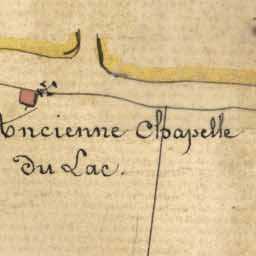 Ancienne Chapelle
Du Lac.